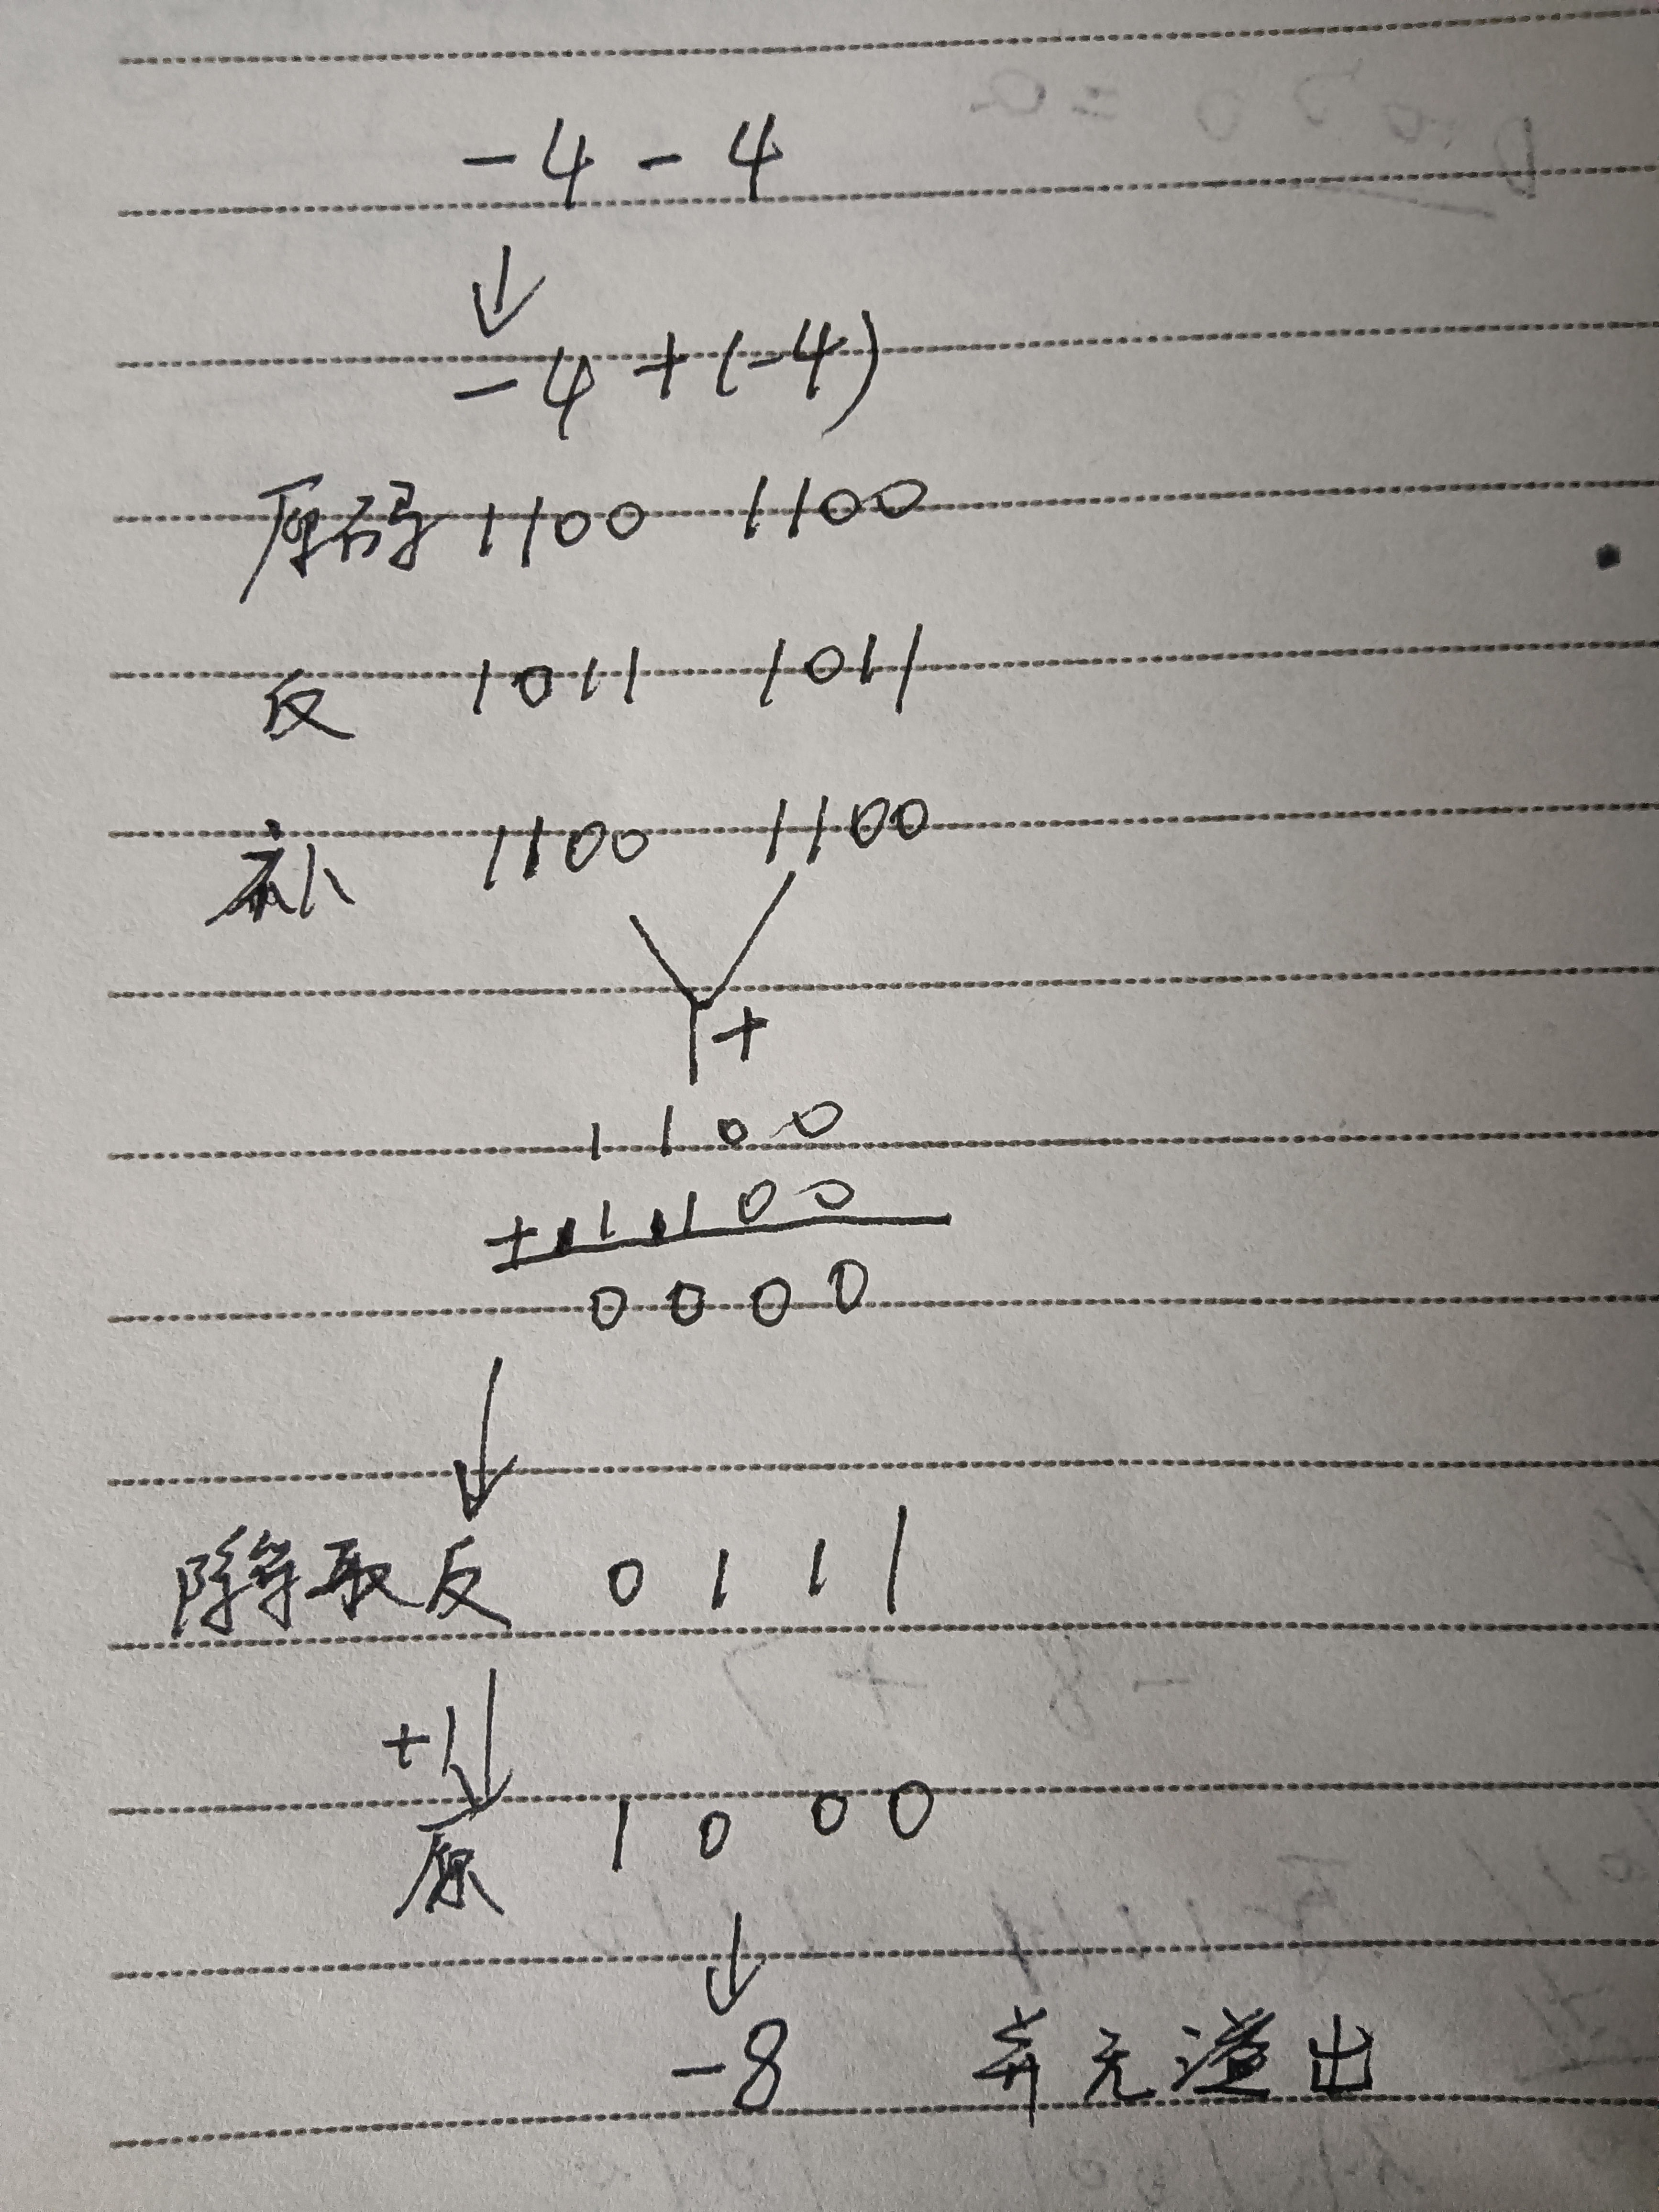 -4-4
↓
-4+(-4)
原码 1100 1100
反 1011 1011
补 1100 1100
+
1100
+1100
0000
↓
除符取反 0111
+1↓
原 1000
↓
-8 并无溢出